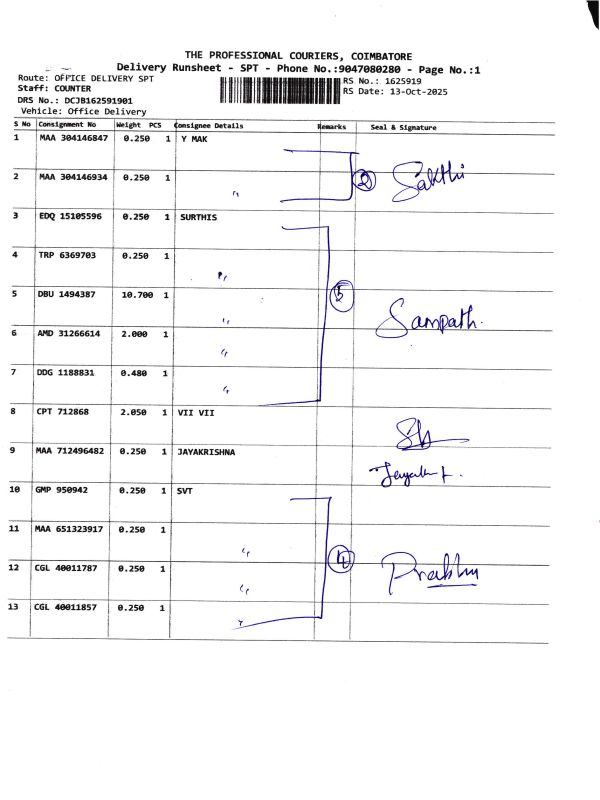 THE PROFESSIONAL COURIERS, COIMBATORE
Delivery Runsheet - SPT - Phone No.:9047080280 - Page No.:1
Route: OFFICE DELIVERY SPT
RS No.: 1625919
Staff: COUNTER
RS Date: 13-Oct-2025
DRS No.: DCJB162591901
Vehicle: Office Delivery
S No Consignment No Weight PCS Consignee Details Remarks Seal & Signature
1 MAA 304146847 0.250 1 Y MAK
2 MAA 304146934 0.250 1 " ② Sakthi
3 EDQ 15105596 0.250 1 SURTHIS
4 TRP 6369703 0.250 1 "
5 DBU 1494387 10.700 1 " ⑤ Sampath.
6 AMD 31266614 2.000 1 "
7 DDG 1188831 0.480 1 "
8 CPT 712868 2.050 1 VII VII
9 MAA 712496482 0.250 1 JAYAKRISHNA
10 GMP 950942 0.250 1 SVT
11 MAA 651323917 0.250 1 "
12 CGL 40011787 0.250 1 " ④ Prabhu
13 CGL 40011857 0.250 1 "